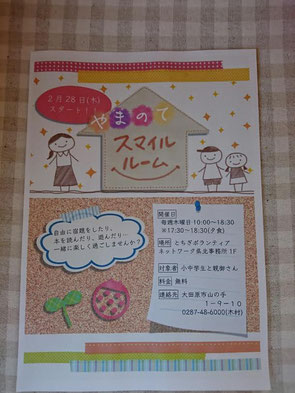 2月28日(木)
スタート!!
やまのて
スマイル
ルーム
自由に宿題をしたり、
本を読んだり、遊んだり…
一緒に楽しく過ごしませんか?
開催日
毎週木曜日 10:00〜18:30
※17:30〜18:30(夕食)
場所 とちぎボランティア
ネットワーク県北事務所 1F
対象者 小中学生と親御さん
料金 無料
連絡先 大田原市山の手
1-9-10
0287-48-6000(木村)